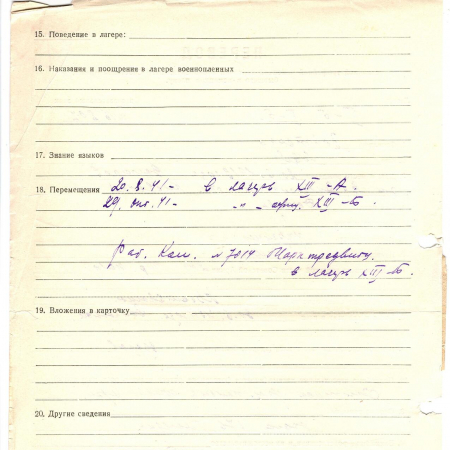 15. Поведение в лагере:
16. Наказания и поощрение в лагере военнопленных
17. Знание языков
18. Перемещения 20. 8. 41 - в лагерь XIII - А.
29. окт. 41 - " - офиц. XIII - Б
Раб. Ком. № 7014 Марктредвиц.
в лагерь XIII - Б.
19. Вложения в карточку
20. Другие сведения